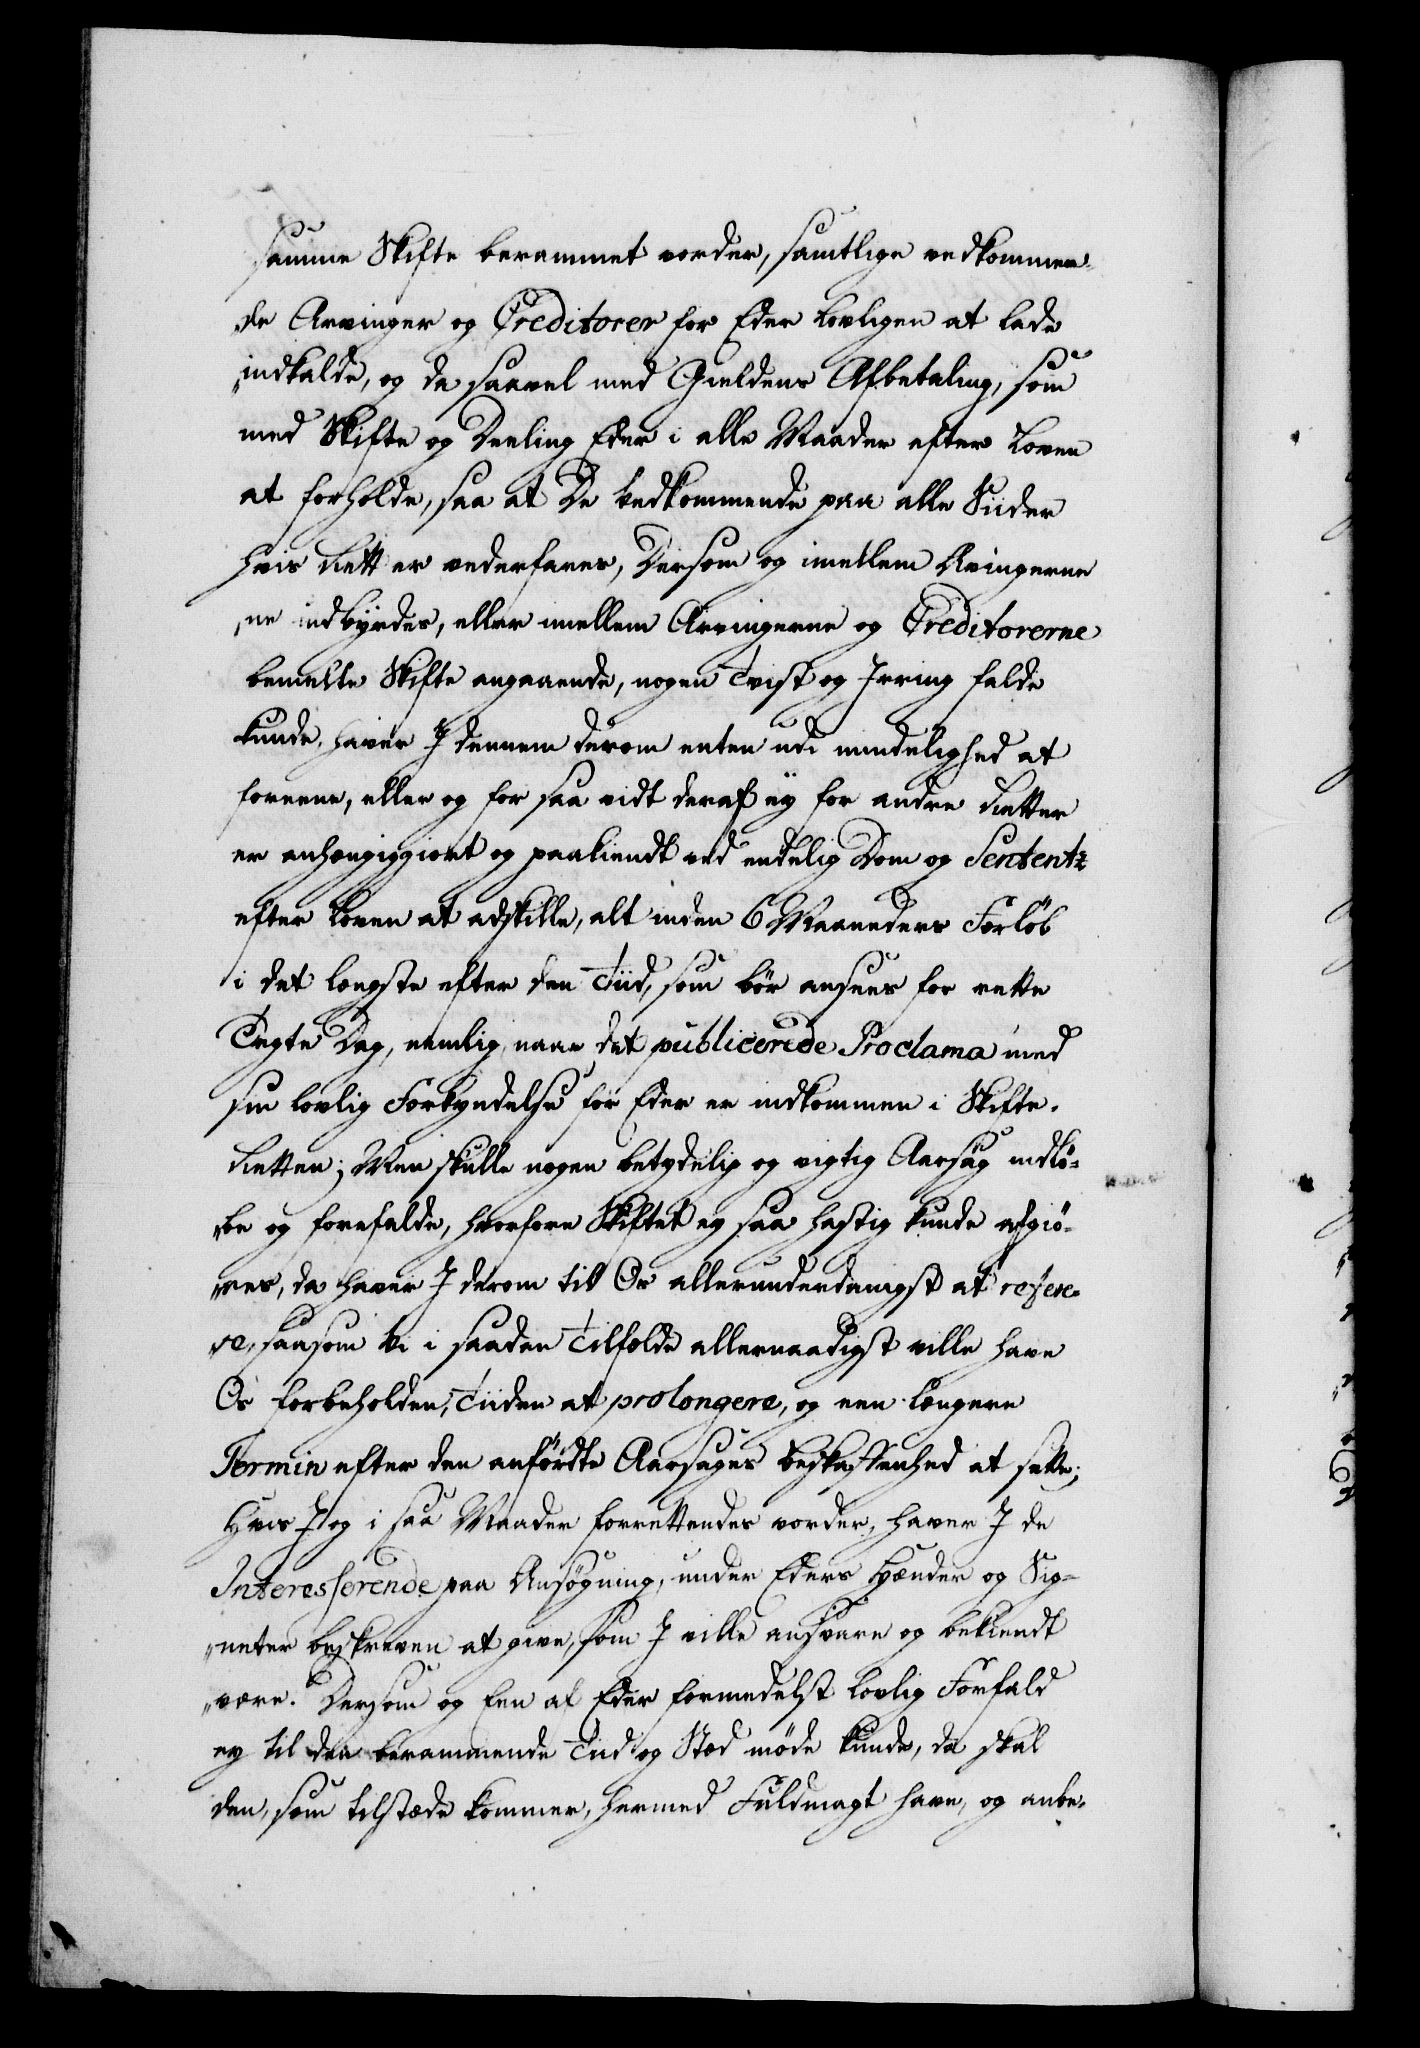 samme Skifte berammet vorder, samtlige vedkommen-
de Arvinger og Creditorer for Eder lovligen at lade
indkalde, og da saavel med Gieldens Afbetaling, som
med Skifte og Deeling Eder i alle Maader efter Loven
at forholde, saa at De Vedkommende paa alle Siider
hvis Rætt er vederfares, Dersom og imellem Arvingerne
ne indbyrdes, eller imellem Arvingerne og Creditorerne
bemelte Skifte angaaende, nogen Tvist og Irring falde
kunde, haver I dennem derom enten udi mindelighed at
foreene, eller og for saa vidt deraf ey for andre Rætter
er anhængiggiort og paakiendt ved endelig Dom og Sententz
efter Loven at adskille, alt inden 6 Maaneders Forløb
i det længste efter den Tiid, som bør ansees for rette
Tægte Dag, nemlig naar det publicerede Proclama med
sin lovlig Forkyndelse for Eder er indkommen i Skifte-
Retten; Men skulle nogen betydelig og vigtig Aarsag indlø-
be og forefalde, hvorfore Skiftet ey saa hastig kunde afgiø-
res, da haver I derom til Os allerunderdanigst at refere-
re, saasom Vi i saadan Tilfælde allernaadigst ville have
Os forbeholden, Tiiden at prolongere, og een længere
Termin efter den anførdte Aarsages beskaffenhed at sette;
Hvis I og i saa Maader forrettendes vorder, haver I de
Interesserende paa Ansøgning, under Eders Hænder og Sig-
neter beskreven at give, som I ville ansvare og bekiendt
være. Dersom og Een af Eder formedelst lovlig Forfald
ey til den berammende Tiid og Sted møde kunde, da skal
den, som tilstæde kommer, hermed Fuldmagt have, og anbe-